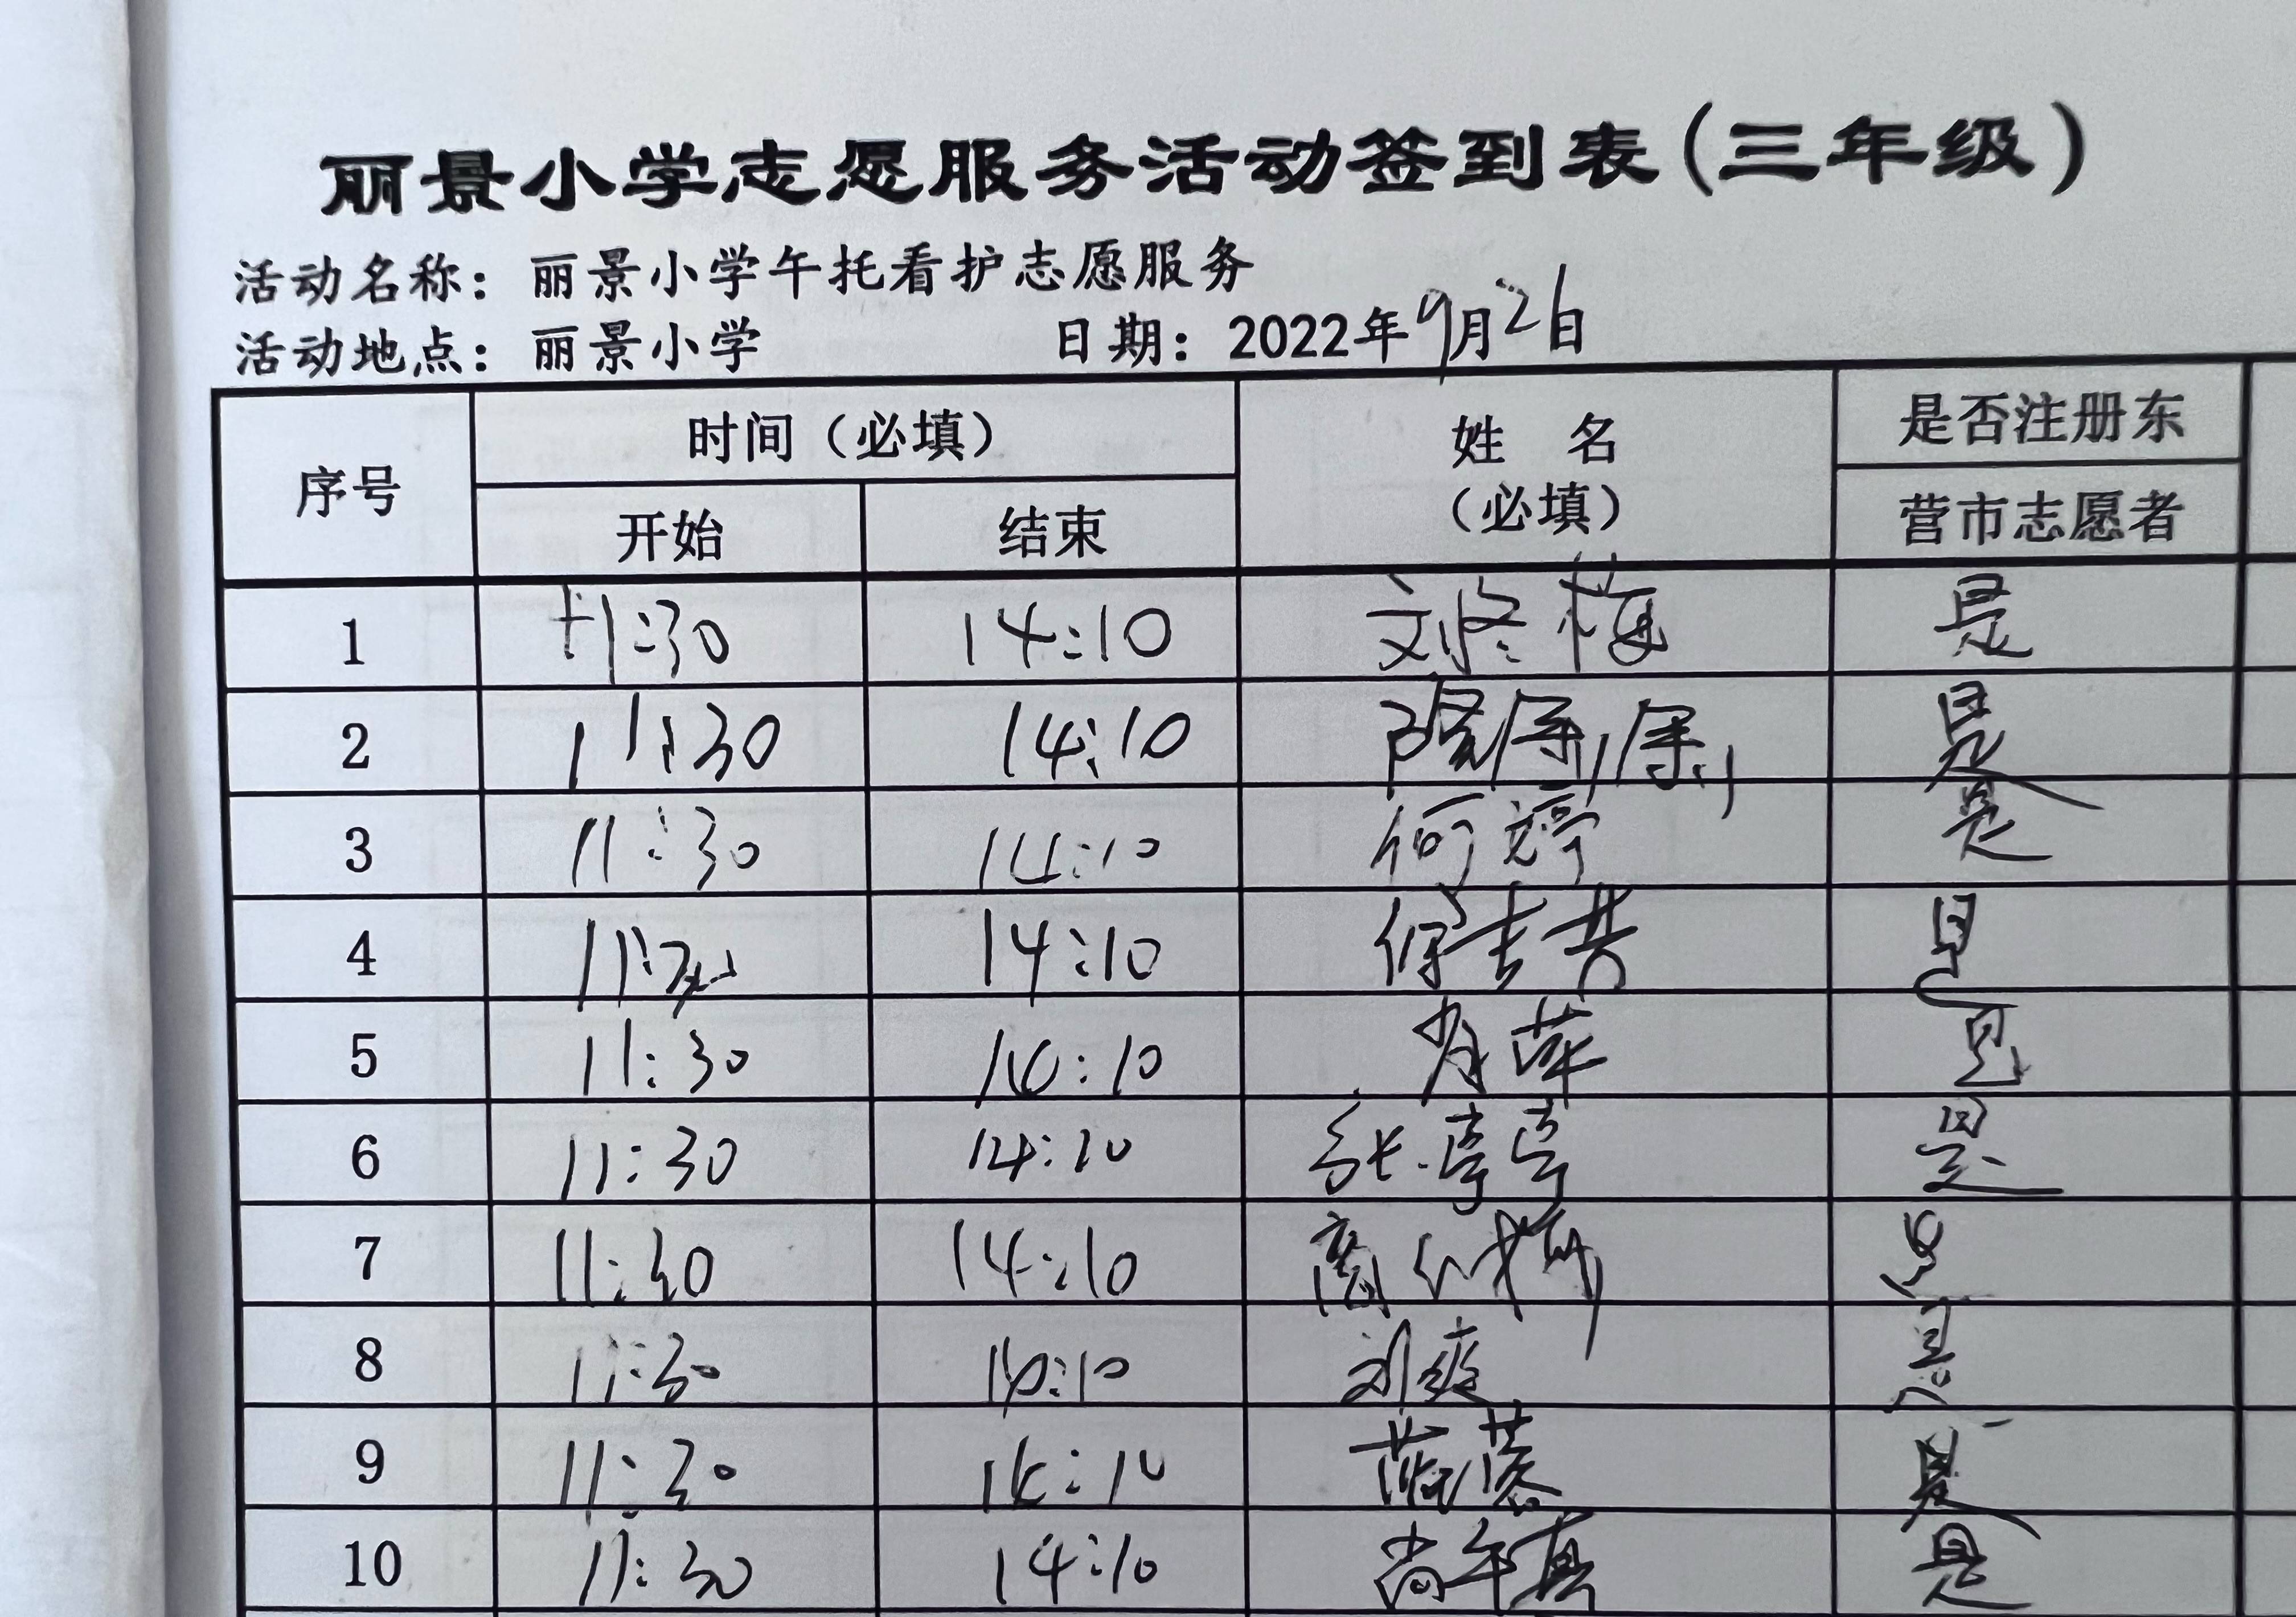 丽景小学志愿服务活动签到表(三年级)
活动名称：丽景小学午托看护志愿服务
活动地点：丽景小学 日期：2022年9月26日
序号 时间（必填） 姓 名（必填） 是否注册东
开始 结束 营市志愿者
1 11:30 14:10 刘冬梅 是
2 11:30 14:10 是
3 11:30 14:10 何婷 是
4 11:30 14:10 是
5 11:30 14:10 肖萍 是
6 11:30 14:10 张亭亭 是
7 11:30 14:10 是
8 11:30 14:10 是
9 11:30 14:10 是
10 11:30 14:10 是